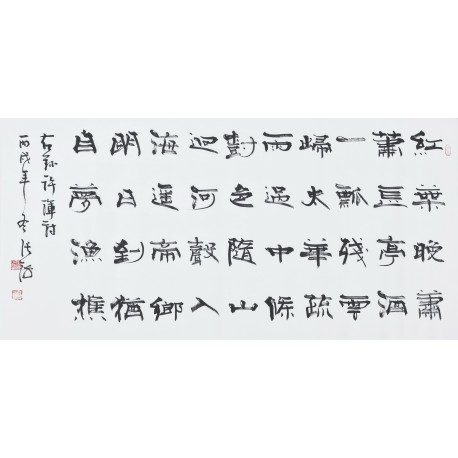 紅葉晚蕭
蕭長亭酒
一瓢殘雲
歸太華疏
雨過中條
樹色隨山
迥河聲入
海遥帝鄉
明日到猶
自夢漁樵
右錄許渾詩
丙戌年冬